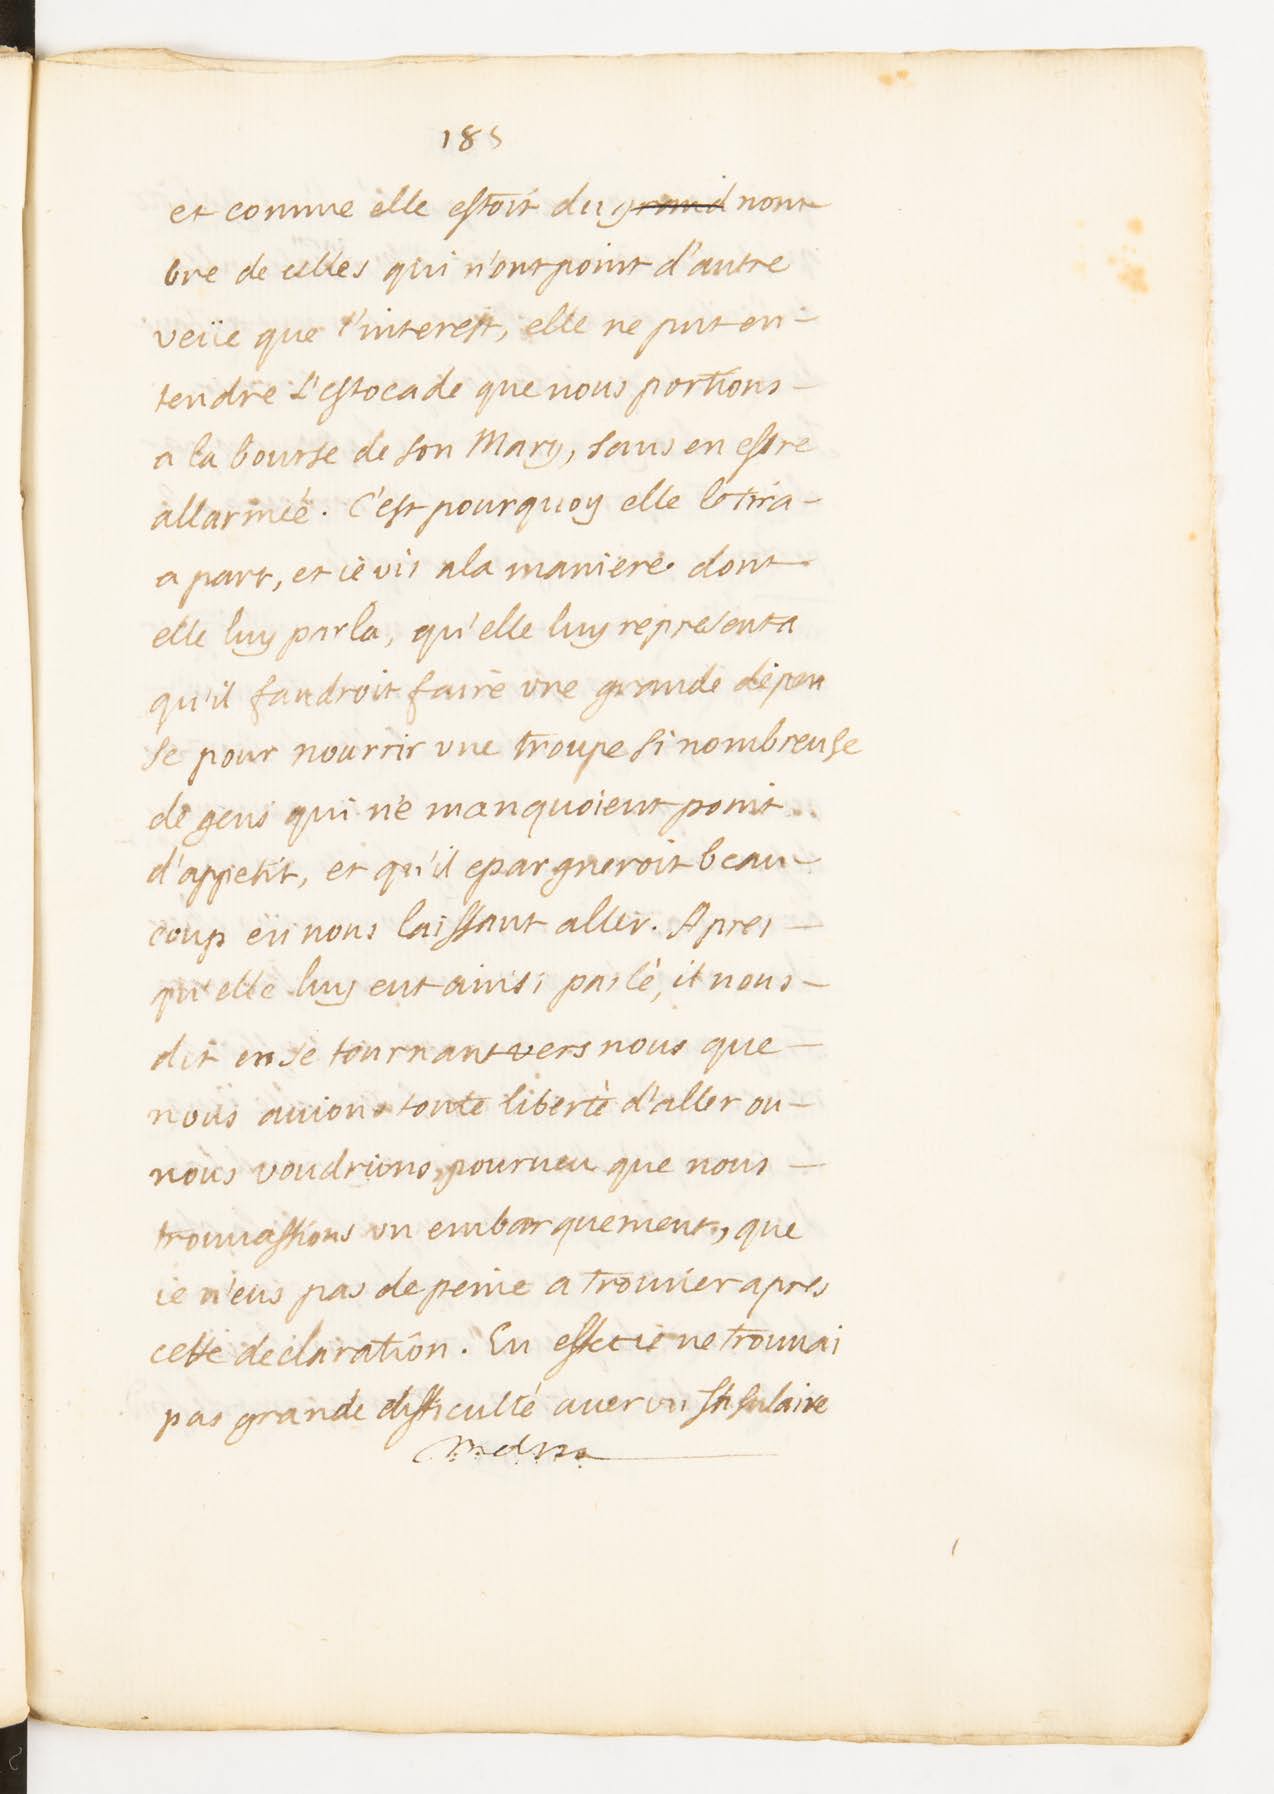 185
et comme elle estoit du grand nom
bre de celles qui n'ont point d'autre
veüe que l'interest, elle ne put en-
tendre L'estocade que nous portions -
a la bourse de son Mary, sans en estre
allarmée. C'est pourquoy elle le tira -
a part, et ie vis a la maniere dont
elle luy parla, qu'elle luy representa
qu'il faudroit faire vne grande dépen
se pour nourrir vne troupe si nombreuse
de gens qui ne manquoient point
d'appetit, et qu'il epargneroit beau-
coup en nous laissant aller. Apres -
qu'elle luy eut ainsi parlé, il nous -
dit en se tournant vers nous que -
nous auions toute liberté d'aller ou -
nous voudrions, pourueu que nous -
trouuassions vn embarquement, que
ie n'eus pas de peine a trouuer apres
cette declaration. En effet ie ne trouuai
pas grande difficulté auec vn